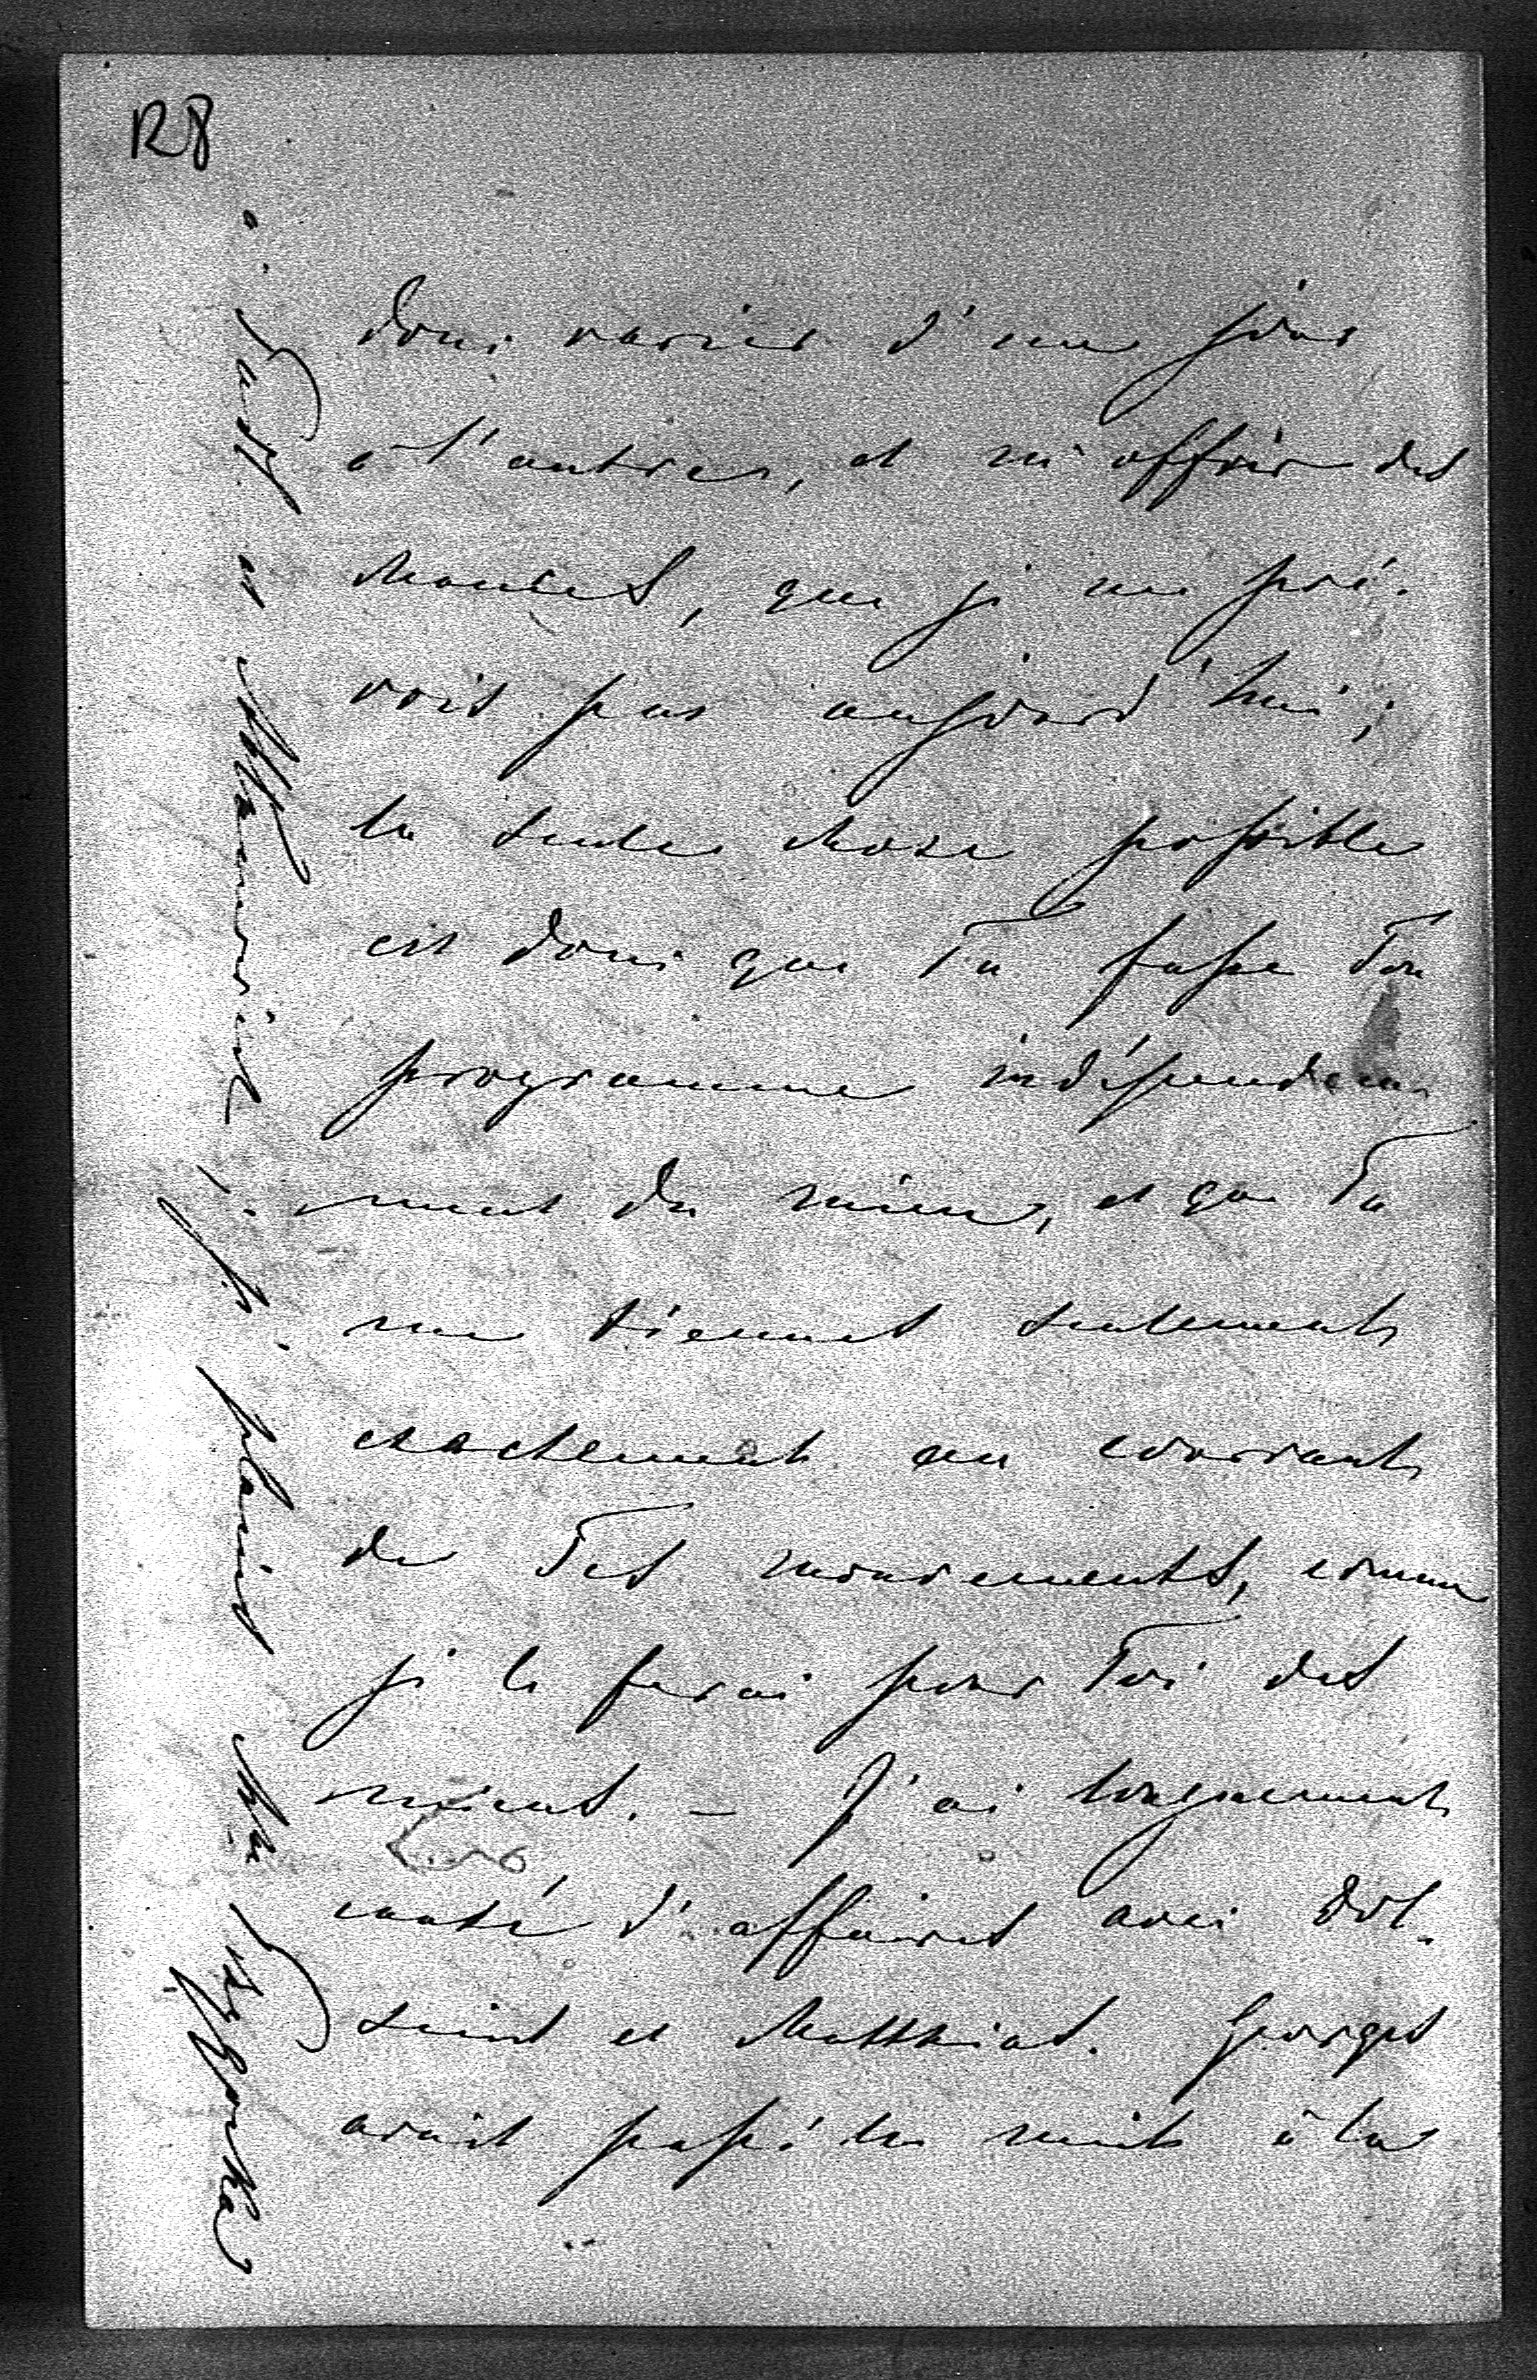 R8
donc varier d'un jour
à l'autre, et m'offrir des
chances, que je ne pré-
vois pas aujourd'hui;
la seule chose possible
est donc que Tu fasse Ton
programme indépendem-
ment du mien, et que Tu
me tiennes seulement
exactement au courrant
de Tes mouvements, comme
je le ferai pour Toi des
miens. – J'ai longuement
causé d'affaires avec
et Matthias. Georges
avait passé la nuit à la
et je plains